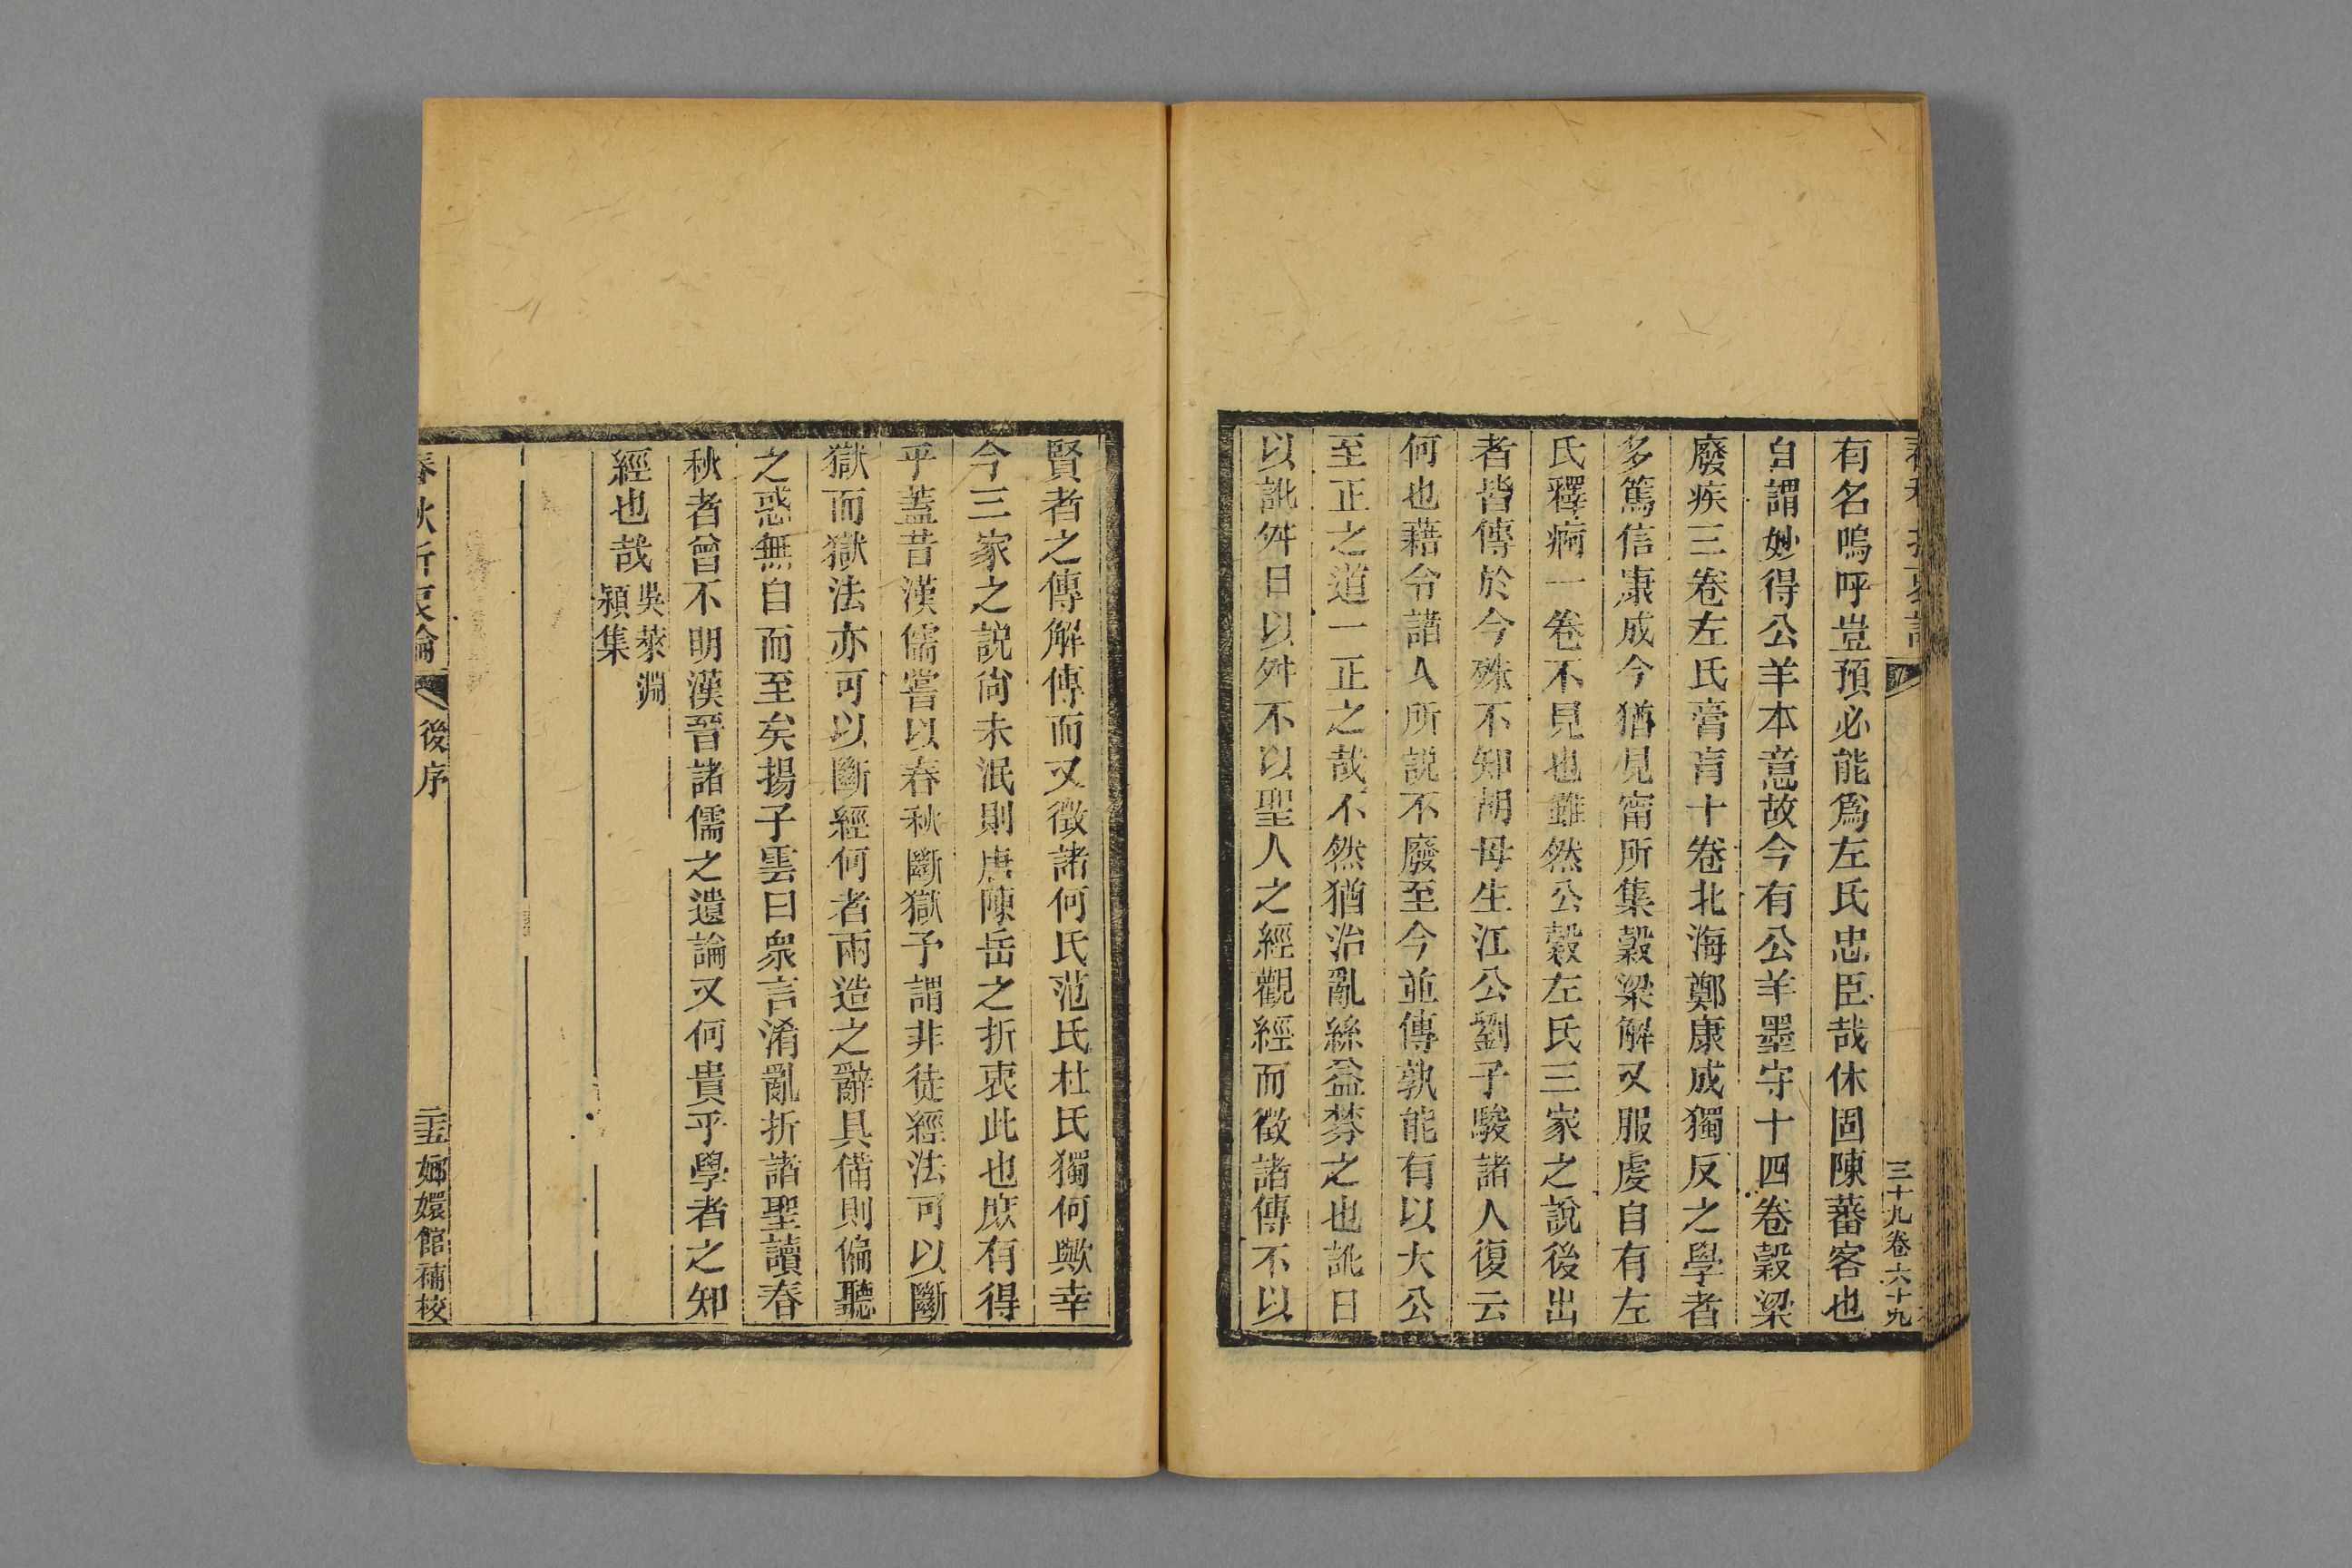 三十九卷六十九
有名嗚呼豈預必能爲左氏忠臣哉休固陳蕃客也
自謂妙得公羊本意故今有公羊墨守十四卷穀梁
廢疾三卷左氏膏肓十卷北海鄭康成獨反之學者
多篤信康成今猶見甯所集穀梁解又服虔自有左
氏釋痾一卷不見也雖然公穀左氏三家之說後出
者皆傳於今殊不知胡母生江公劉子駿諸人復云
何也藉令諸人所說不廢至今並傳孰能有以大公
至正之道一正之哉不然猶治亂絲益棼之也訛日
以訛舛日以舛不以聖人之經觀經而徵諸傳不以
賢者之傳解傳而又徵諸何氏范氏杜氏獨何歟幸
今三家之說尙未泯則唐陳岳之折衷此也庶有得
乎蓋昔漢儒嘗以春秋斷獄予謂非徒經法可以斷
獄而獄法亦可以斷經何者兩造之辭具備則偏聽
之惑無自而至矣揚子雲曰衆言淆亂折諸聖讀春
秋者曾不明漢晉諸儒之遺論又何貴乎學者之知
經也哉
吳萊淵
潁集
春秋折衷論
後序
嫏嬛館補校